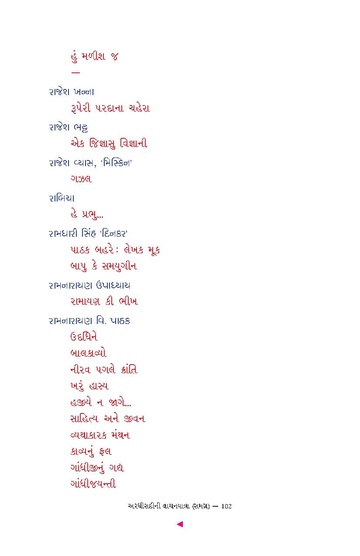 હું મળીશ જ
—
રાજેશ ખન્ના
રૂપેરી પરદાના ચહેરા
રાજેશ ભટ્ટ
એક જિજ્ઞાસુ વિજ્ઞાની
રાજેશ વ્યાસ, ‘મિસ્કિન’
ગઝલ
રાબિયા
હે પ્રભુ...
રામધારી સિંહ ‘દિનકર’
પાઠક બહરે : લેખક મૂક
બાપુ કે સમયુગીન
રામનારાયણ ઉપાધ્યાય
રામાયણ કી ભીખ
રામનારાયણ વિ. પાઠક
ઉદધિને
બાલકાવ્યો
નીરવ પગલે ક્રાંતિ
ખરું હાસ્ય
હજીયે ન જાગે...
સાહિત્ય અને જીવન
વ્યથાકારક મંથન
કાવ્યનું ફલ
ગાંધીજીનું ગદ્ય
ગાંધીજયન્તી
અરધીસદીની વાચનયાત્રા (સમગ્ર) — 102